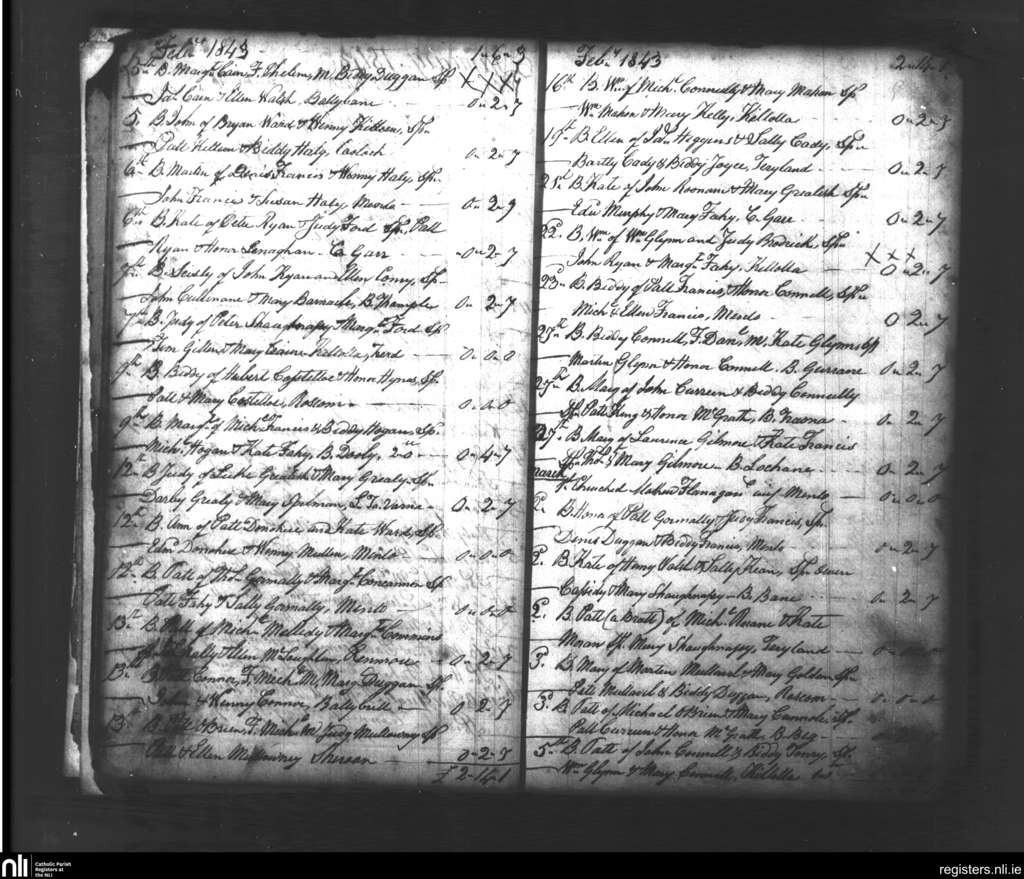 Feb.y 1843 1-6-3
5th B. Margt. Cain, F. Thelem, M. Biddy Duggan Sp
Jas. Cain & Ellen Walsh, Ballybane 0-2-7
5. B. John of Bryan Ward & Henny Killeen, Sp.
Patt Killeen & Biddy Healy, 0-2-7
6th B. Martin of Francis & Henny Haly, Sp.
John Francis & Susan Haly, 0-2-9
6th B. Kate of Peter Ryan & Judy Ford Sp. Patt
Ryan & Honor Lenaghan C. Garr 0-2-7
7th B. of John Ryan and Ellen Conry, Sp.
John Cullinane & Mary 0-2-7
7th B. Judy of Peter Shaughnessy & Margt. Ford Sp
Tim Gillen & Mary Kellolla, 0-0-0
9th B. Biddy of Hubert Costelloe & Honor Hynes, Sp.
Patt & Mary Costelloe, Roscom 0-0-0
9th B. Margt. of Mich. Francis & Biddy Hogan, Sp.
Mich. Hogan & Kate Fahy, B. Dooly, 0-4-7
12th B. Judy of Luke Grealish & Mary Grealy, Sp.
Darby Grealy & Mary 0-2-7
12th B. Ann of Patt Donohue and Kate Ward, Sp.
Edm. Donohue & Henny Mullen, Menlo 0-0-0
12th B. Patt of Thos. Gormally & Margt. Concannon Sp
Patt Fahy & Sally Gormally, Menlo 0-0-0
13th B. Patt of Michl. Mellody & Margt. Commins
& Ellen McLoughlin, Renmore 0-2-7
13th B. Patt Connor, F. Mich. M. Mary Duggan Sp.
John & Henny Connor, Ballybrit 0-2-7
13th B. Patt O Brien, F. Mich. M. Judy Sp
Patt & Ellen 0-2-7
£ 2-14-1
Feb.y 1843 2-14-1
16th B. Wm. of Mich. Connelly & Mary Mahon Sp.
Wm. Mahon & Mary Kelly, Kellolla 0-2-7
19th B. Ellen of Jas. Heggins & Sally Cady, Sp.
Bartly Cady & Biddy Joyce, Teryland 0-2-7
21st B. Kate of John Noonan & Mary Grealish Sp.
Edw. Murphy & Mary Fahy, C. Gare 0-2-7
22. B. Wm. of Wm. Glynn and Judy Brodrick, Sp.
John Ryan & Margt. Fahy, Kellolla 0-2-7
23d B. Biddy of Patt Francis, & Honor Connell, Sp.
Mich. & Ellen Francis, Menlo 0-2-7
25th B. Biddy Connell, F. Danl. M. Kate Glynn, Sp
Martin Glynn & Honor Connell. B. Gurrane 0-2-7
27th B. Mary of John Curreen & Biddy Connelly
Sp. Patt King & Honor McGrath, B. 0-2-7
27th B. Mary of Laurence Gilmore & Kate Francis
Sp. Thos. & Mary Gilmore B. Lochane 0-2-7
March
1st Churched Flanagan's wife Menlo 0-0-0
2. B. Honor of Patt Gormally & Judy Francis, Sp.
Denis Duggan & Biddy Francis, Menlo 0-2-7
2. B. Kate of Henry Walsh & Sally Kean, Sp. Owen
Cassidy & Mary Shaughnessy B. Bane 0-2-7
2. B. Patt (a Bratt) of Mich. Ruane & Kate
Moran Sp. Mary Shaughnessy, Teryland 0-0-0
3. B. Mary of Martin Mullard & Mary Golden Sp.
Pete Mullard & Biddy Duggan, Roscom 0-0-0
3d B. Patt of Michael O Brien & Mary Sp.
Patt Curreen & Honor McGrath B. Beg
5th B. Patt of John Connell & Biddy Sp.
Wm. Glynn & Mary Connell, Kellolla
nli Catholic Parish Registers at the NLI
registers.nli.ie